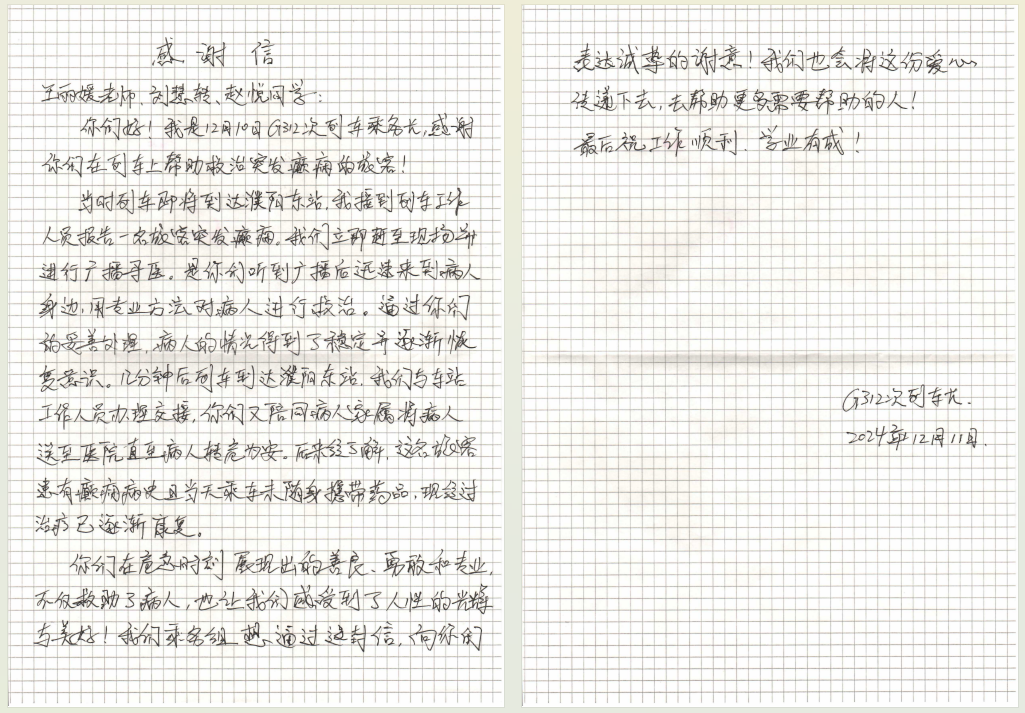 感谢信
王丽媛老师、刘慧敏、赵悦同学：
你们好！我是12月10日G312次列车乘务长，感谢
你们在列车上帮助救治突发癫痫的旅客！
当时列车即将到达濮阳东站，我接到列车工作
人员报告一名旅客突发癫痫。我们立即赶至现场并
进行广播寻医。是你们听到广播后迅速来到病人
身边，用专业方法对病人进行救治。通过你们
的妥善处理，病人的情况得到了稳定并逐渐恢
复意识。几分钟后列车到达濮阳东站，我们与车站
工作人员办理交接，你们又陪同病人家属将病人
送至医院直至病人转危为安。后来经了解，这名旅客
患有癫痫病史且当天乘车未随身携带药品，现经过
治疗已逐渐康复。
你们在危急时刻展现出的善良、勇敢和专业，
不仅救助了病人，也让我们感受到了人性的光辉
与美好！我们乘务组想通过这封信，向你们
表达诚挚的谢意！我们也会将这份爱心
传递下去，去帮助更多需要帮助的人！
最后祝工作顺利，学业有成！
G312次列车长.
2024年12月11日.